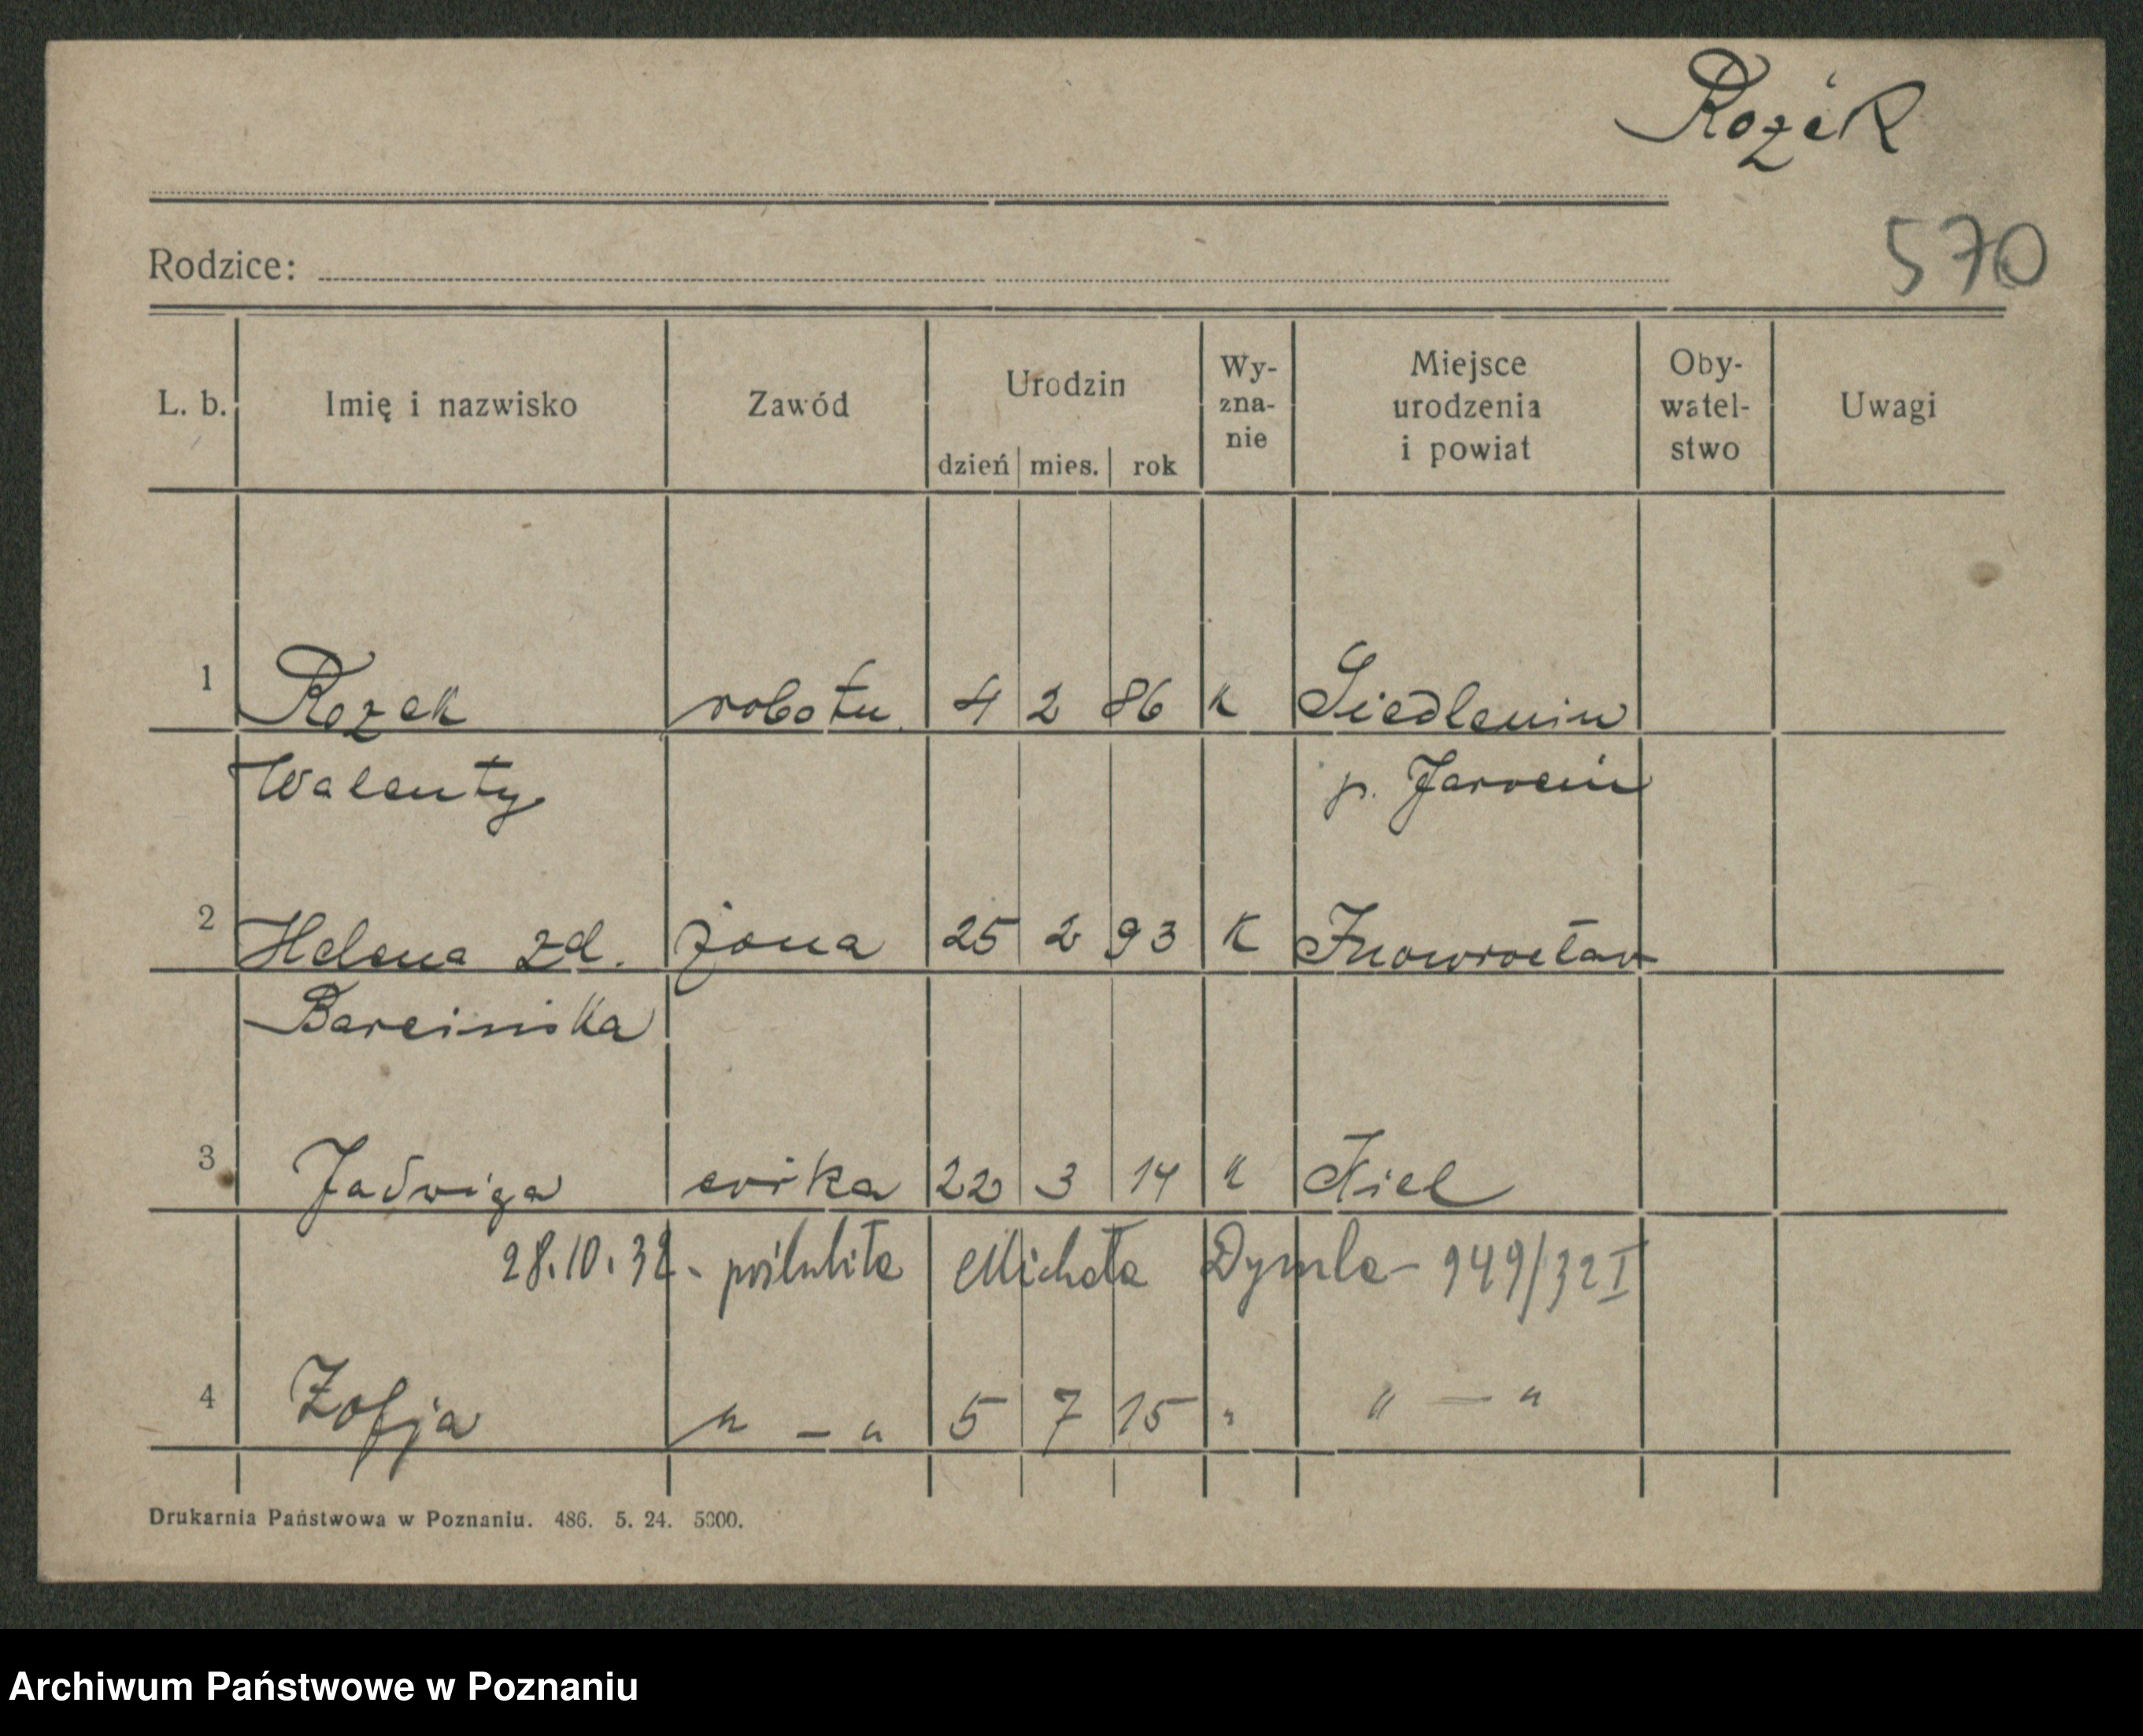 Rozek
570
Rodzice:
L. b. Imię i nazwisko Zawód Urodzin dzień mies. rok Wy-zna-nie Miejsce urodzenia i powiat Oby-watel-stwo Uwagi
1 Rozek robotn. 4 2 86 K Siedlemin
Walenty p. Jarocin
2 Helena zd. żona 25 2 93 K Inowrocław
Barcińska
3 Jadwiga córka 22 3 14 K Kiel
28.10.32 - poślubiła Michała Dymla - 949/32 I
4 Zofja " — " 5 7 15 " " — "
Drukarnia Państwowa w Poznaniu. 486. 5. 24. 5000.
Archiwum Państwowe w Poznaniu